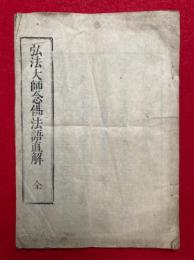 弘法大師念佛法語直解 全